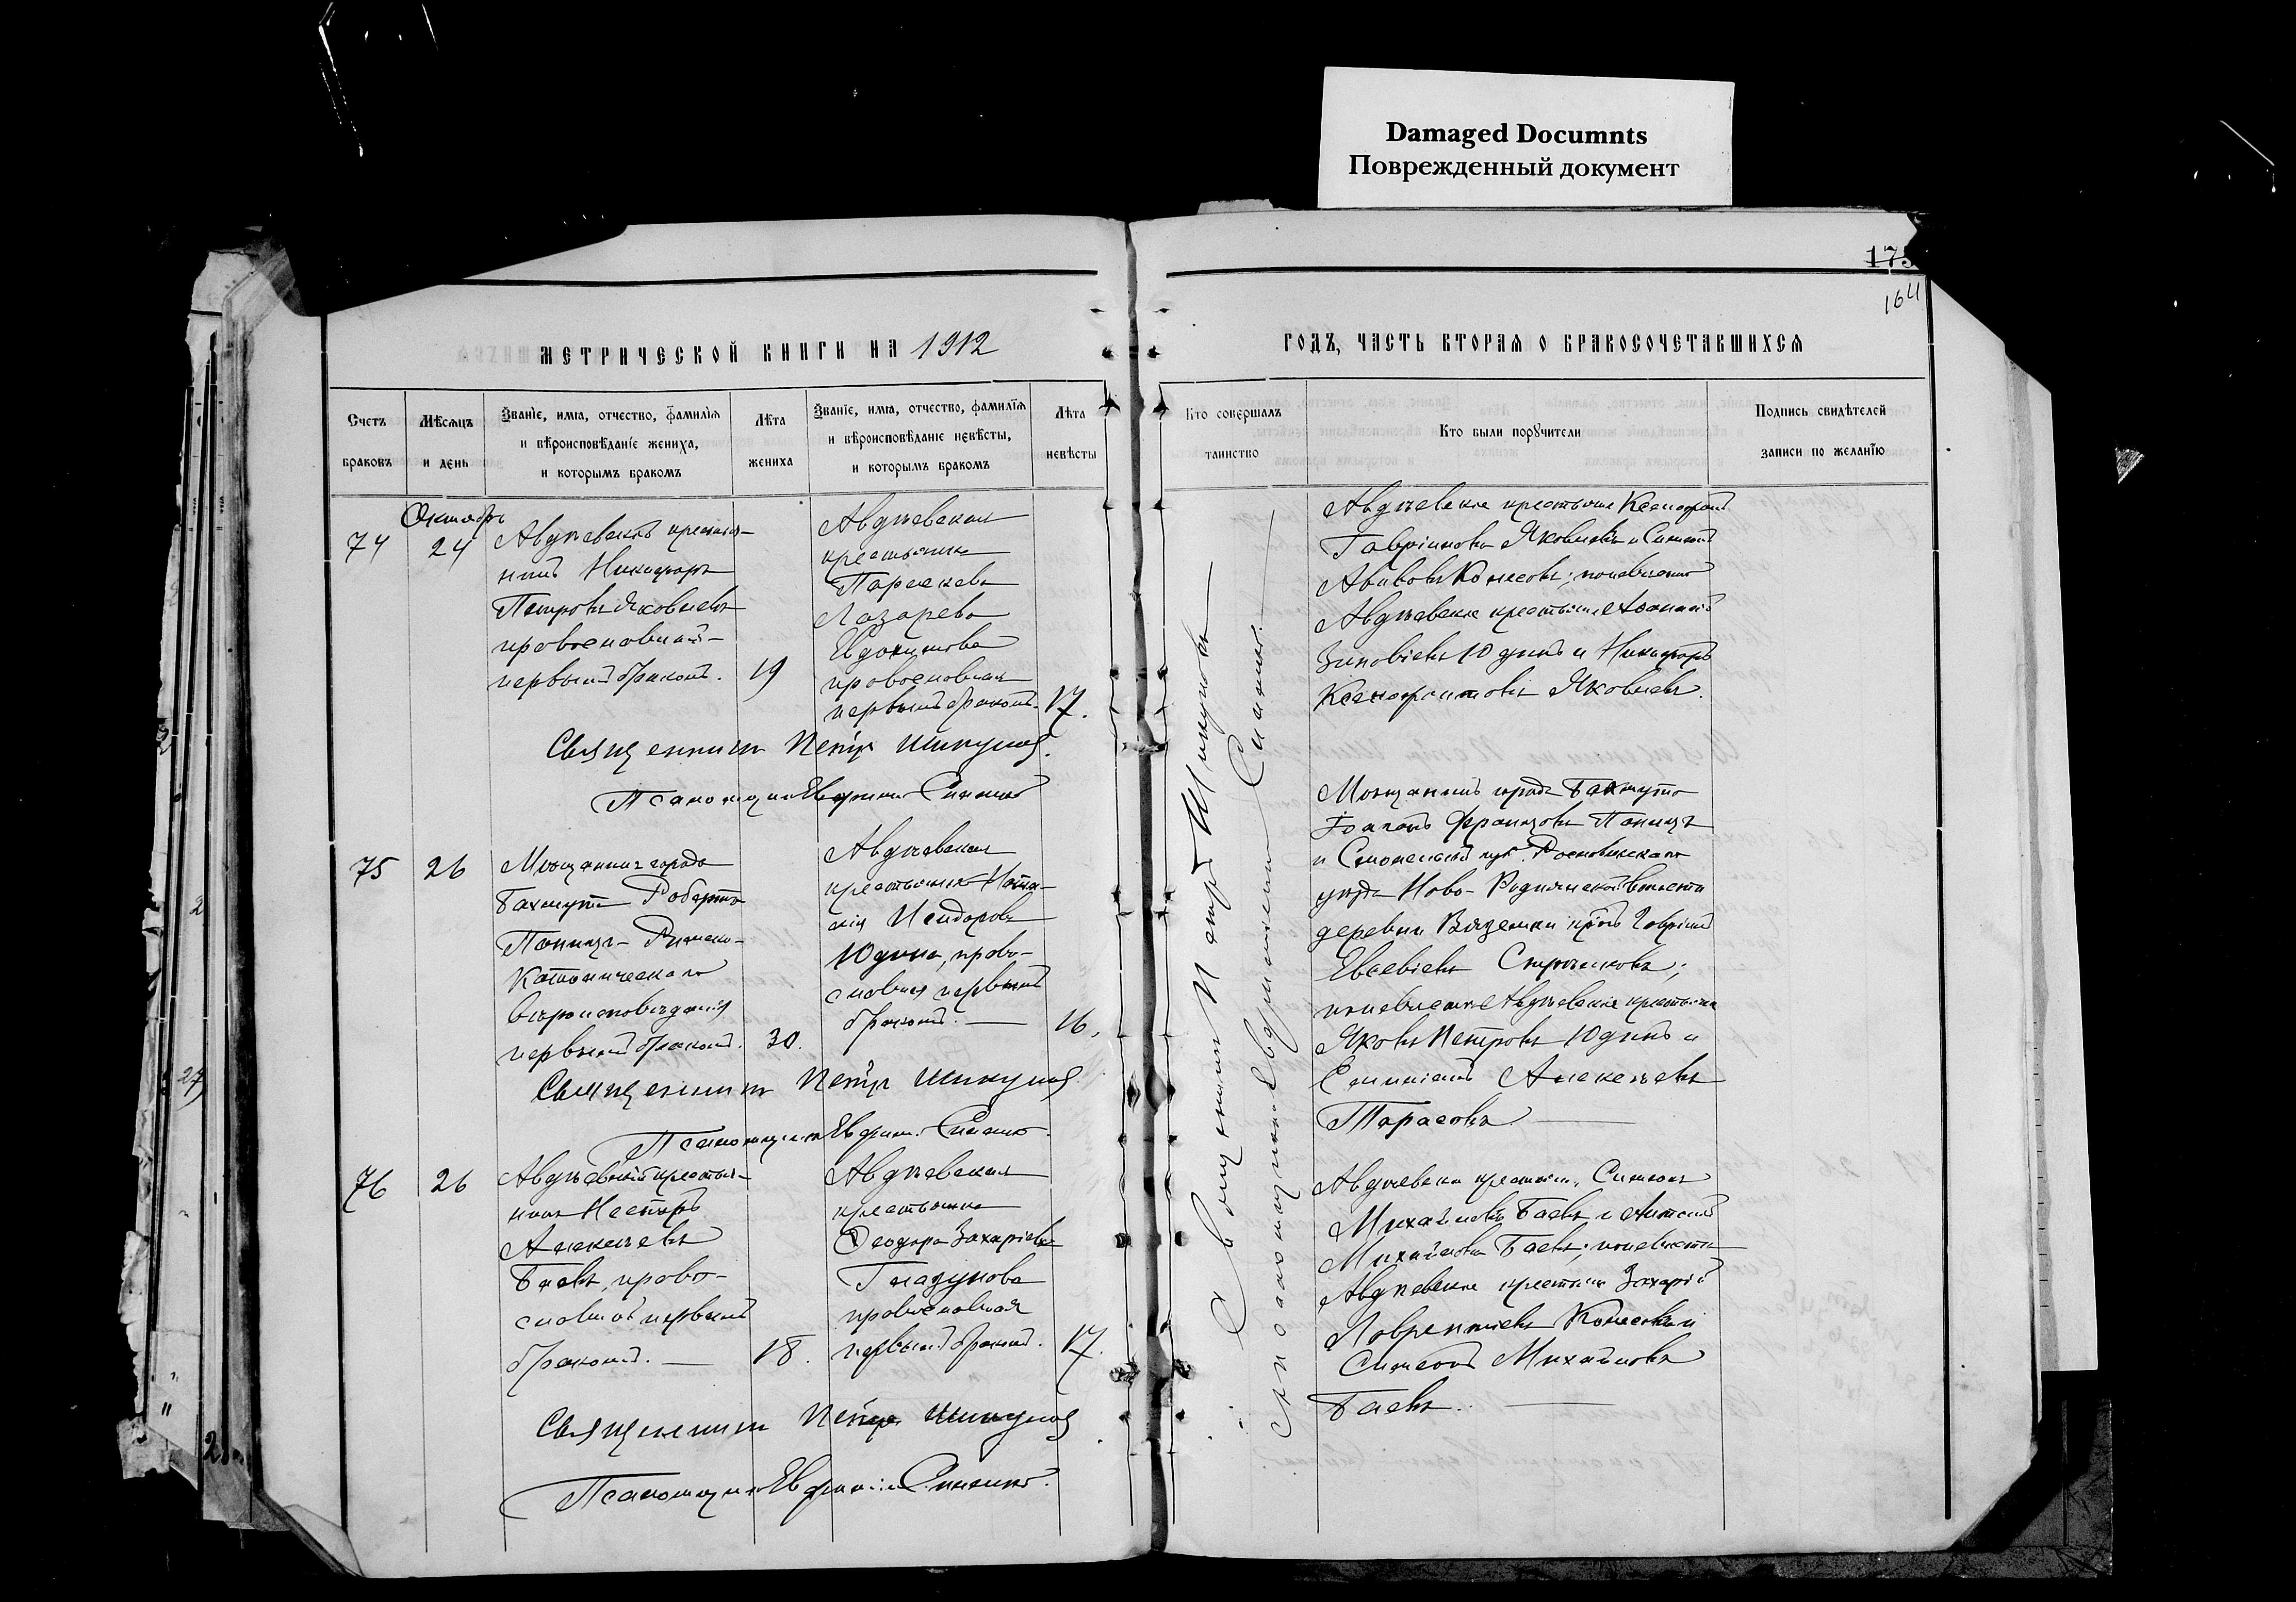 Damaged Documnts
Поврежденный документ
175
164
МЕТРИЧЕСКОЙ КНИГИ НА 1912
ГОДЪ, ЧАСТЬ ВТОРАЯ О БРАКОСОЧЕТАВШИХСЯ
Счетъ браковъ
Мѣсяцъ и день
Званіе, имя, отчество, фамилія
и вѣроисповѣданіе жениха,
и которымъ бракомъ
Лѣта жениха
Званіе, имя, отчество, фамилія
и вѣроисповѣданіе невѣсты,
и которымъ бракомъ
Лѣта невѣсты
Кто совершалъ таинство
Кто были поручители
Подпись свидѣтелей
записи по желанію
Октябрь
74
24
Авдѣевскій крестья-
нинъ Никифоръ
Петровъ Яковлевъ
православный
первымъ бракомъ.
19
Авдѣевская
крестьянка
Параскева
Лазарева
Евдокимова
православная
первымъ бракомъ.
17.
Авдѣевскіе крестьяне Ксенофонтъ
Гавріиловъ Яковлевъ и Симеонъ
Колесовъ; по невѣстѣ
Авдѣевскіе крестьяне
Зиновіевъ Юдинъ и Никифоръ
Ксенофонтовъ Яковлевъ.
Священникъ Петръ Шикуловъ.
Псаломщикъ Синенко
75
26
Мѣщанинъ города
Бахмута Робертъ
Паницъ Римско-
Католическаго
вѣроисповѣданія
первымъ бракомъ.
30.
Авдѣевская
крестьянка Ната-
лія Исидорова
Юдина, право-
славная первымъ
бракомъ.
16.
Мѣщанинъ города Бахмута
Францовъ Паницъ
и Смоленской губ. Рославльскаго
уѣзда Ново-
деревни Вяземки Гавріилъ
Евсевіевъ
по невѣстѣ Авдѣевскіе крестьяне
Яковъ Петровъ Юдинъ и
Алексѣевъ
Тарасовъ
Священникъ Петръ Шикуловъ
Псаломщикъ Синенко.
76
26
Авдѣевскій крестья-
нинъ Несторъ
Алексѣевъ
Баевъ, право-
славный первымъ
бракомъ.
18.
Авдѣевская
крестьянка
Ѳеодора Захаріева
Гладунова
православная
первымъ бракомъ.
17.
Авдѣевскіе крестьяне Симеонъ
Михайловъ Баевъ и
Михайловъ Баевъ; по невѣстѣ
Авдѣевскіе крестьяне Захарій
Лаврентіевъ Колесовъ и
Симеонъ Михайловъ
Баевъ.
Священникъ Петръ Шикуловъ
Псаломщикъ Синенко.
Священникъ Петръ Шикуловъ
Псаломщикъ Синенко.